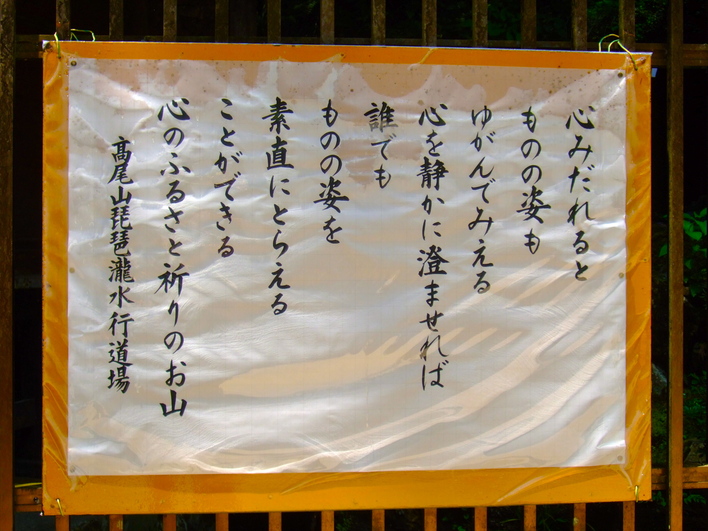 心みだれると
ものの姿も
ゆがんでみえる
心を静かに澄ませれば
誰でも
ものの姿を
素直にとらえる
ことができる
心のふるさと祈りのお山
髙尾山琵琶瀧水行道場